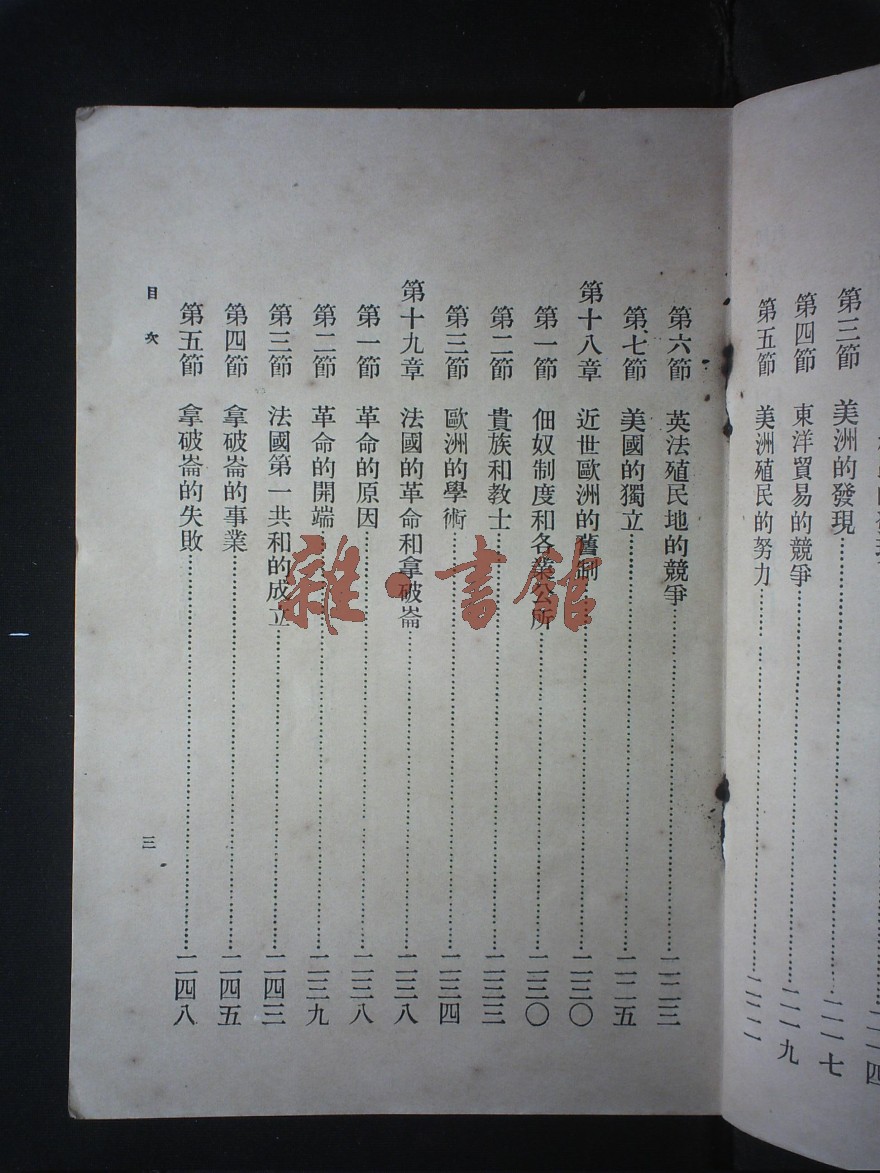 第三節 美洲的發現……一一七
第四節 東洋貿易的競爭……二一九
第五節 美洲殖民的努力……二二一
第六節 英法殖民地的競爭……二二三
第七節 美國的獨立……二二五
第十八章 近世歐洲的舊制……二三〇
第一節 佃奴制度和各業公所……二三〇
第二節 貴族和教士……二三三
第三節 歐洲的學術……二三四
第十九章 法國的革命和拿破崙……二三八
第一節 革命的原因……二三八
第二節 革命的開端……二三九
第三節 法國第一共和的成立……二四三
第四節 拿破崙的事業……二四五
第五節 拿破崙的失敗……二四八
目次
三
雜·書館